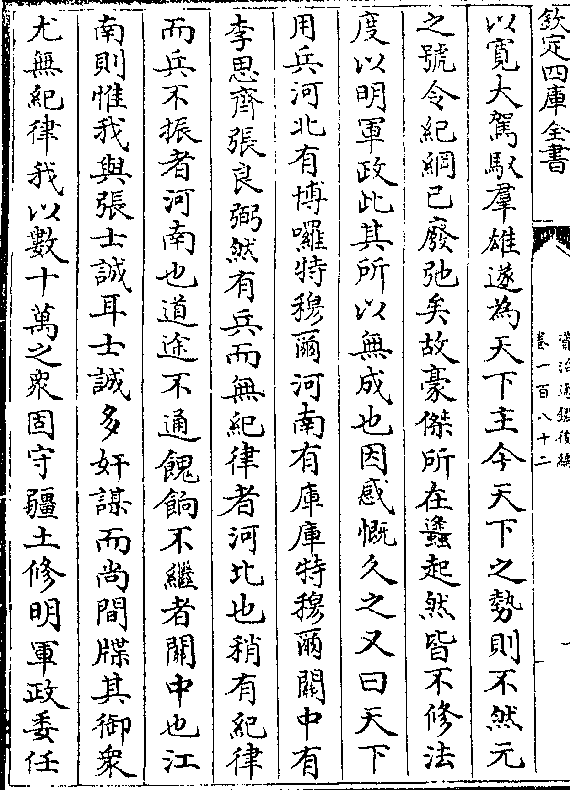 欽定四庫全書
資治通鑑後編
卷一百八十二
以寛大駕馭羣雄遂為天下主今天下之勢則不然元
之號令紀綱已廢弛矣故豪傑所在蠭起然皆不修法
度以明軍政此其所以無成也因感慨久之又曰天下
用兵河北有博囉特穆爾河南有庫庫特穆爾關中有
李思齊張良弼然有兵而無紀律者河北也稍有紀律
而兵不振者河南也道途不通餽餉不繼者關中也江
南則惟我與張士誠耳士誠多奸謀而尚間牒其御衆
尤無紀律我以數十萬之衆固守疆土修明軍政委任